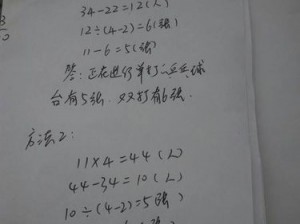 34-22=12(人)
12÷(4-2)=6(張)
11-6=5(張)
答:正在进行单打乒乓球
台有5張,双打有6張.
方法2:
11×4=44(人)
44-34=10(人)
10÷(4-2)=5(張)